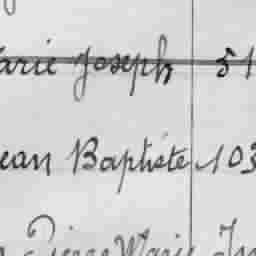 arie Joseph 51
ean Baptiste 103
Pierre Marie